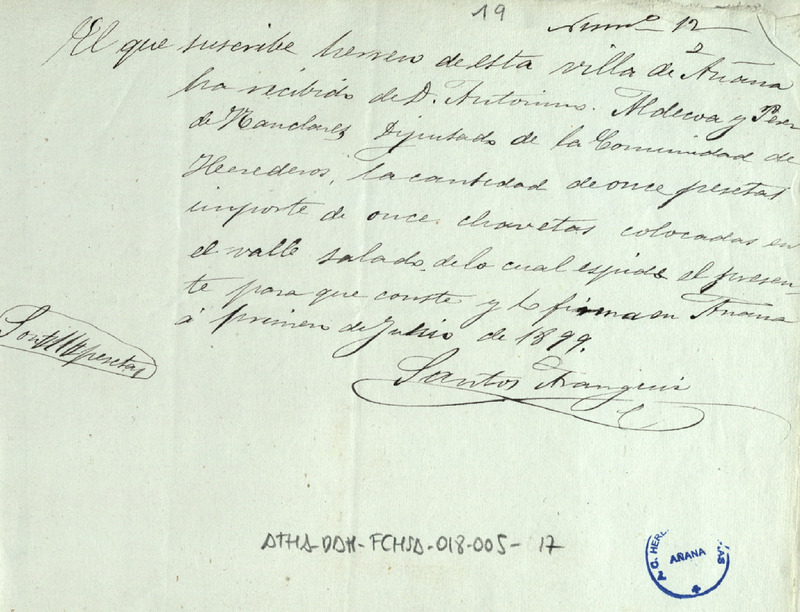 19
Num.o 12
El que suscribe herrero de esta villa de Añana
ha recibido de D. Antonino Aldecoa y Perez
de Nanclares, Diputado de la Comunidad de
Herederos, la cantidad de once pesetas
importe de once chavetas colocadas en
el valle salado. de lo cual espide el presen-
te para que conste y lo firma en Añana
á primero de Julio de 1899.
Son 11 pesetas
Santos
ATHA-DAH-FCHSA-018-005-17
AÑANA